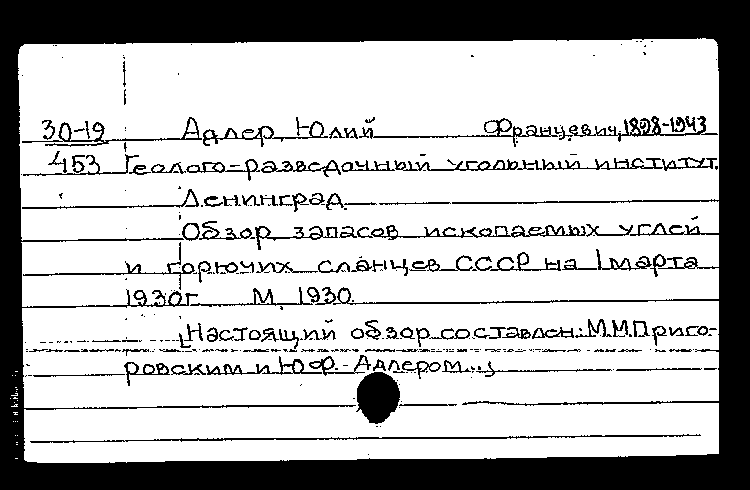 30-19 Адлер, Юлий Францевич, 1898-1943
453 Геолого-разведочный угольный институт.
Ленинград.
Обзор запасов ископаемых углей
и горючих сланцев СССР на 1 марта
1930г. М. 1930.
[Настоящий обзор составлен: М.М.Приго-
ровским и Ю.Ф. Адлером...]